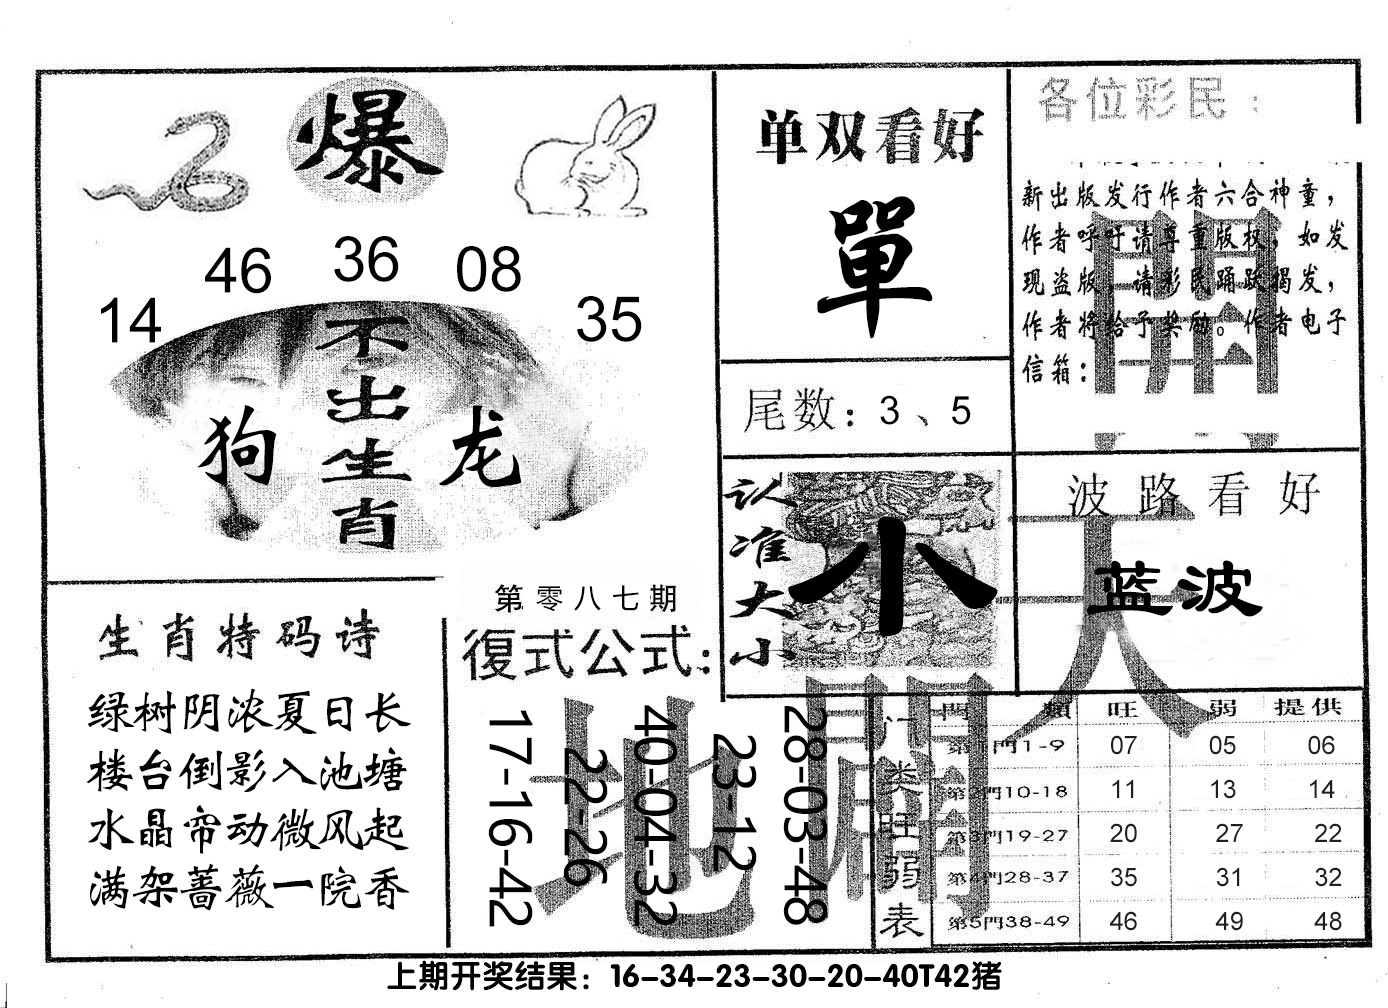 爆
14 46 36 08 35
不出生肖
狗 龙
单双看好
單
尾数：3、5
各位彩民：
新出版发行作者六合神童，
作者呼吁请尊重版权，如发
现盗版，请彩民踊跃揭发，
作者将给予奖励。作者电子
信箱：
開
认准大小
小
波路看好
蓝波
天
生肖特码诗
绿树阴浓夏日长
楼台倒影入池塘
水晶帘动微风起
满架蔷薇一院香
第零八七期
復式公式：
17-16-42
22-26
40-04-32
23-12
28-03-48
地
門類 旺 弱 提供
门类旺弱表
第1門1-9 07 05 06
第2門10-18 11 13 14
第3門19-27 20 27 22
第4門28-37 35 31 32
第5門38-49 46 49 48
上期开奖结果：16-34-23-30-20-40T42猪